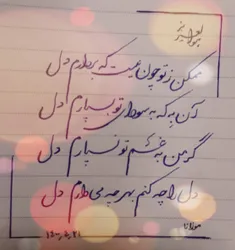 ممکن ز تو چون نیست که بردارم دل
آن به که به سودای تو بسپارم دل
گر من به غم تو نسپارم دل
دل را چه کنم بهر چه می دارم دل
مولانا